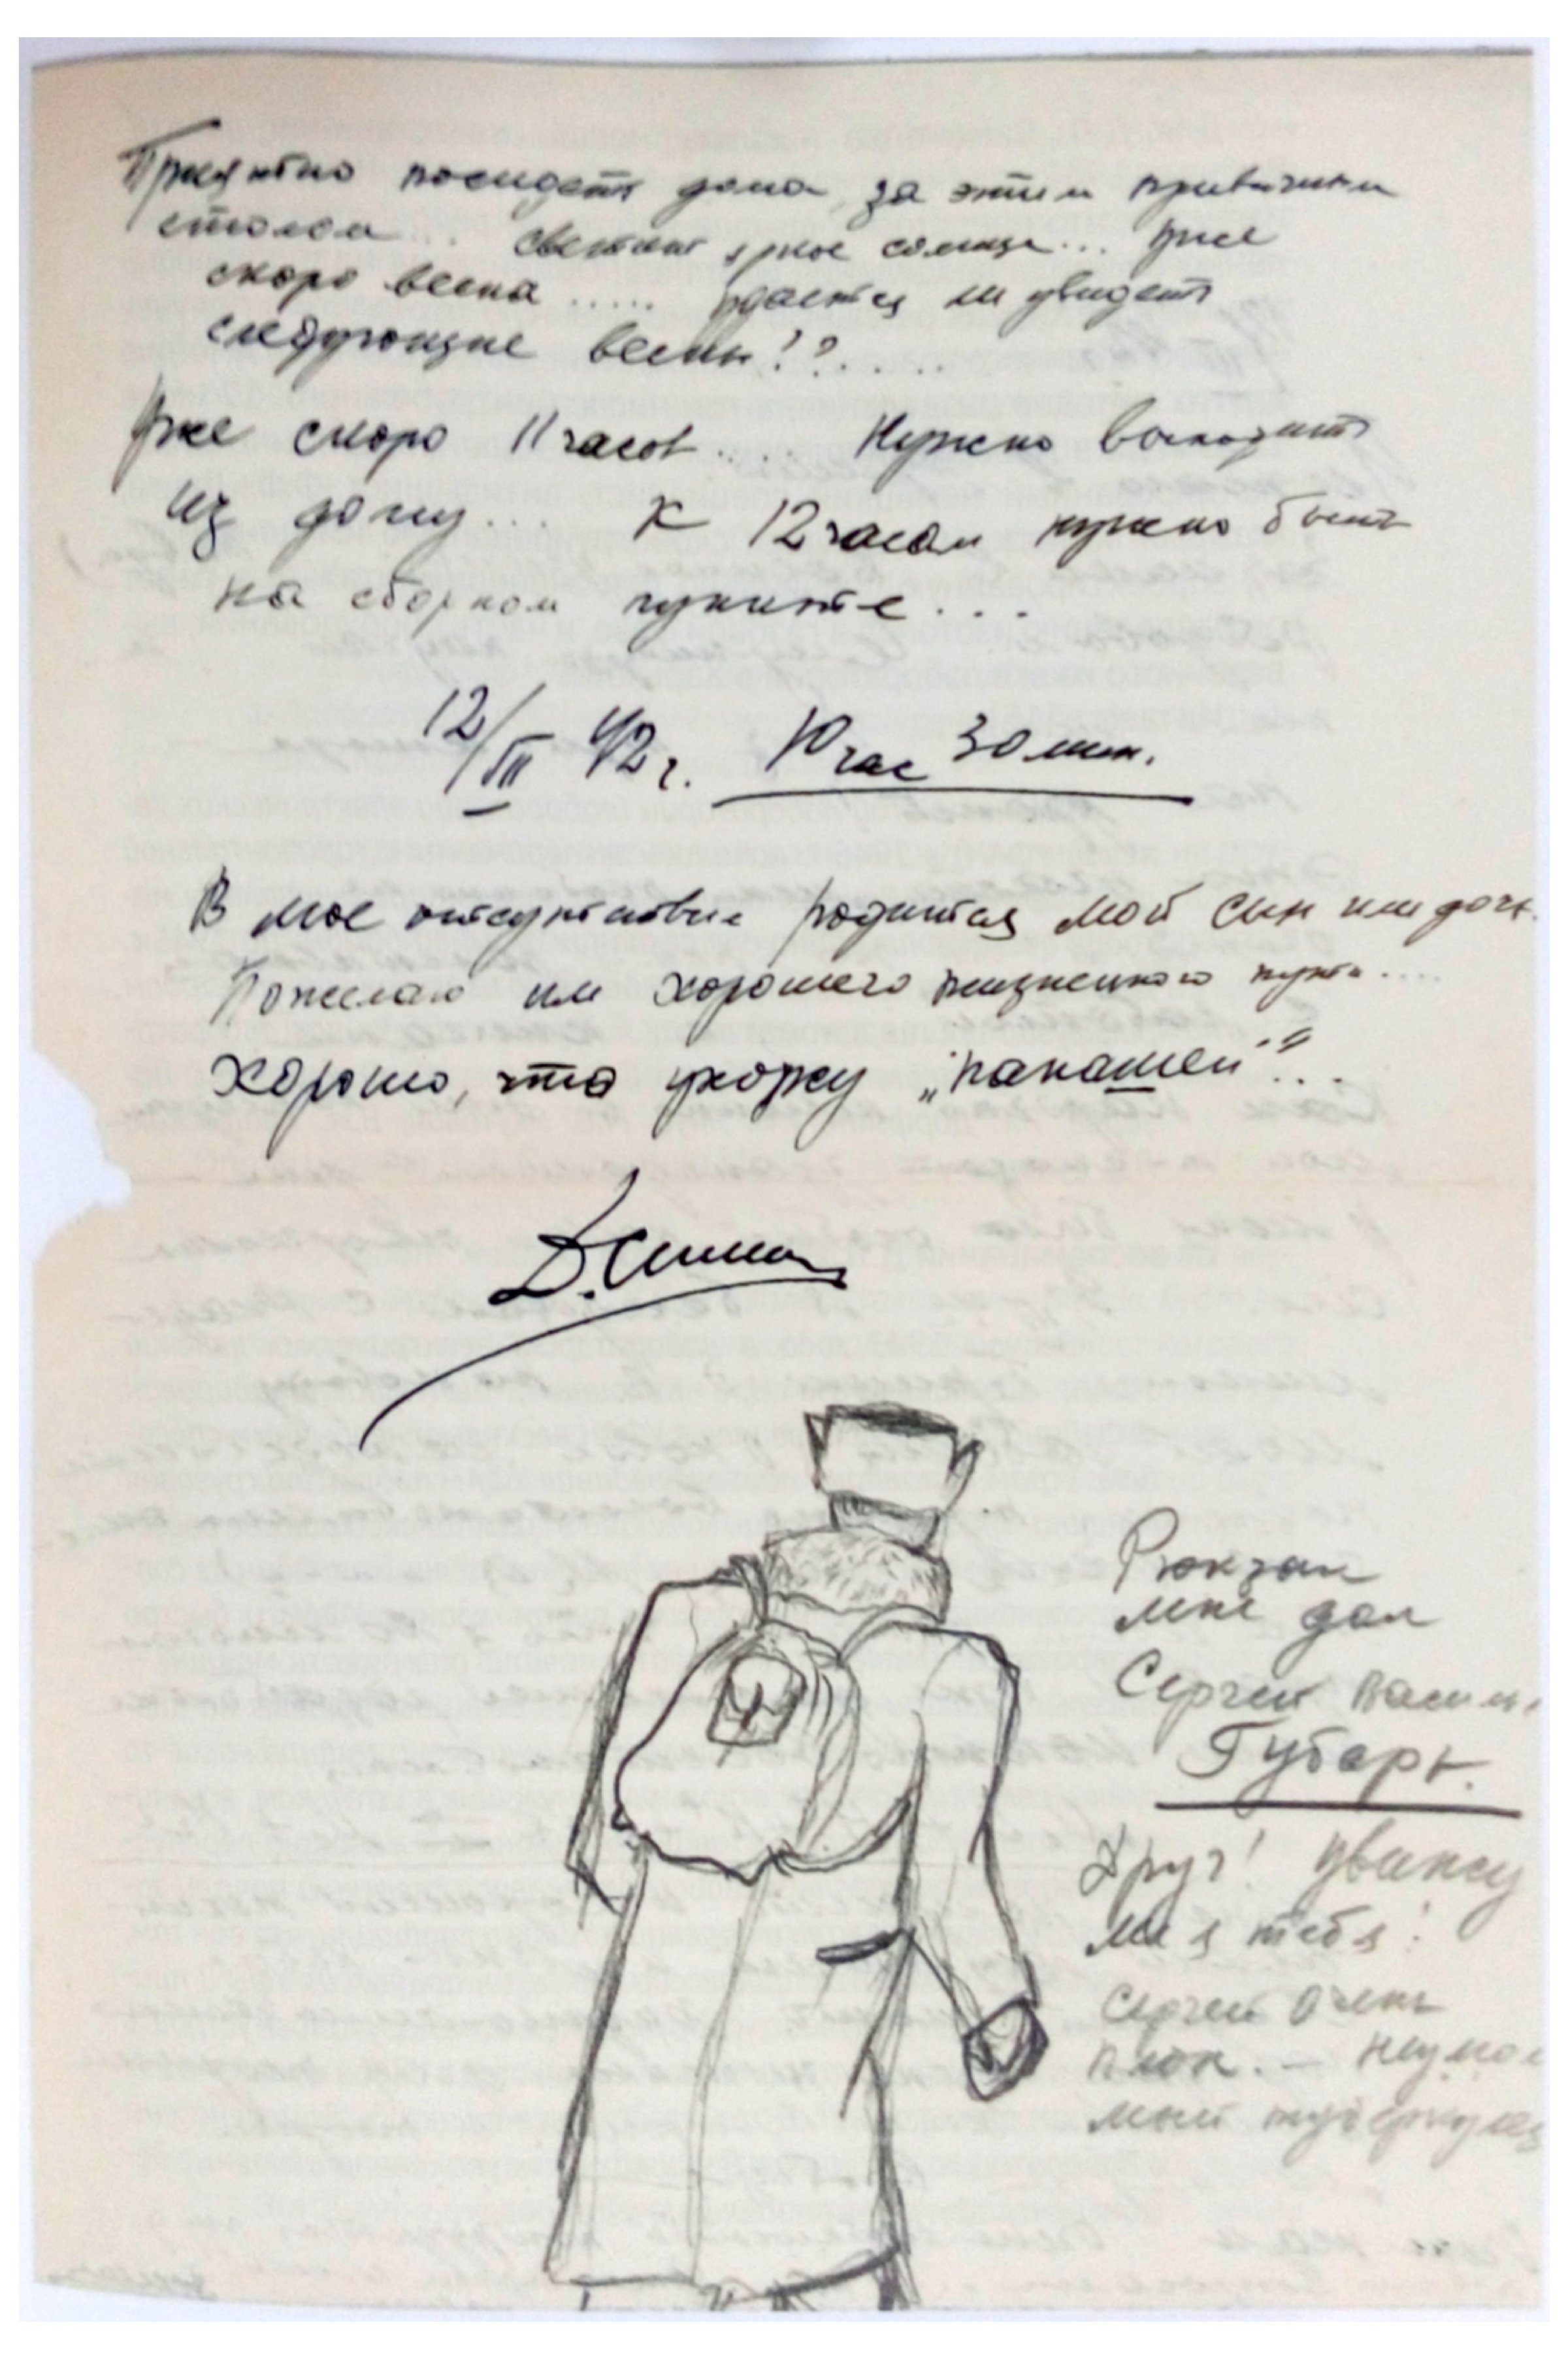 Приятно посидеть дома за этим привычным
столом... светит яркое солнце... Уже
скоро весна ..... удастся ли увидеть
следующие весны!?....
Уже скоро 11 часов.... Нужно выходить
из дому... К 12 часам нужно быть
на сборном пункте...
12/III 42 г. 10 час 30 мин.
В мое отсутствие родится мой сын или дочь.
Пожелаю им хорошего жизненного пути....
Хорошо, что ухожу „папашей"...
Рюкзак
мне дал
Сергей
Губарь.
Друг! Увижу
ли я тебя!
Сергей очень
плох. –
туберкулез